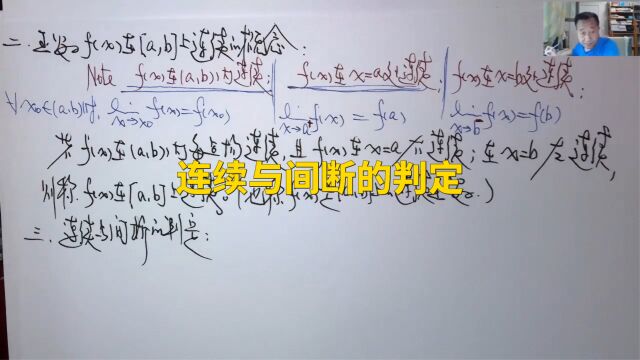 二. 函数 f(x)在[a,b]上连续的概念:
Note f(x)在(a,b)内连续; f(x)在x=a处连续; f(x)在x=b处连续;
∀x₀∈(a,b)时, lim x→x₀ f(x)=f(x₀) lim x→a⁺ f(x)=f(a) lim x→b⁻ f(x)=f(b)
若f(x)在(a,b)内每点均连续,且f(x)在x=a右连续;在x=b左连续,
则称f(x)在[a,b]上
连续与间断的判定
三. 连续与间断的判定: